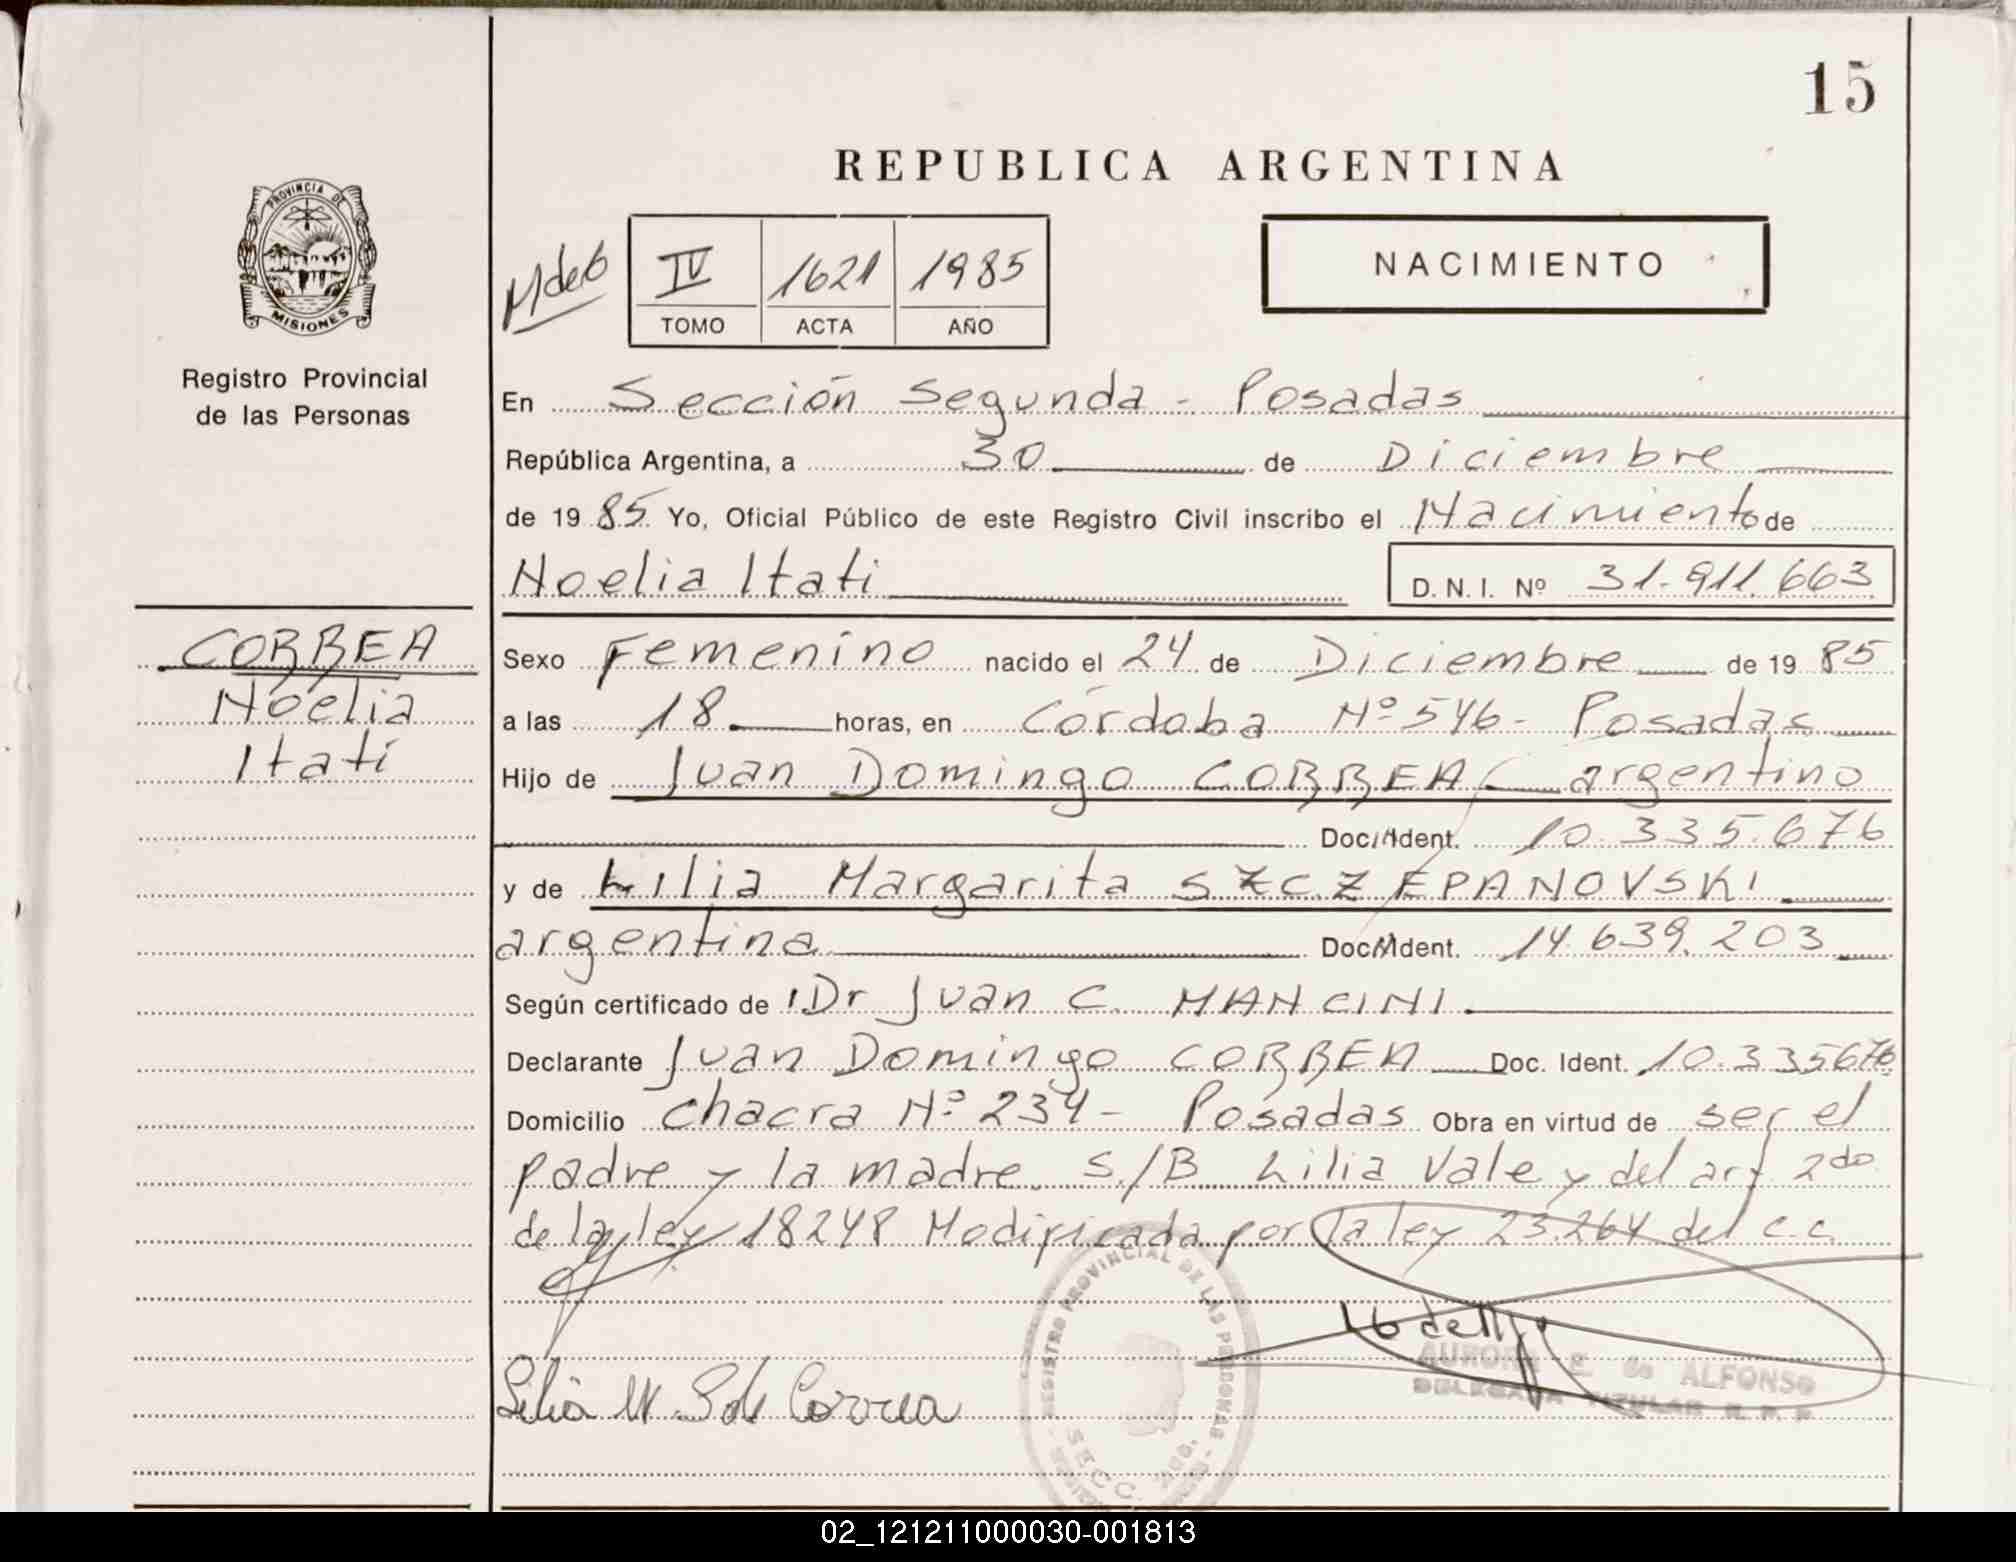 15
REPUBLICA ARGENTINA
PROVINCIA DE
MISIONES
Registro Provincial
de las Personas
IV 1621 1985
TOMO ACTA AÑO
NACIMIENTO
En Sección Segunda - Posadas
República Argentina, a 30 de Diciembre
de 1985 Yo, Oficial Público de este Registro Civil inscribo el Nacimiento de
Noelia Itati D. N. I. Nº 31.911.663
CORREA
Noelia
Itatí
Sexo Femenino nacido el 24 de Diciembre de 1985
a las 18 horas, en Córdoba Nº 546 - Posadas
Hijo de Juan Domingo CORREA argentino
Doc. Ident. 10.335.676
y de Lilia Margarita SZCZEPANOVSKI
argentina Doc. Ident. 14.639.203
Según certificado de Dr Juan C. MANCINI
Declarante Juan Domingo CORREA Doc. Ident. 10.335676
Domicilio Chacra Nº 234 - Posadas Obra en virtud de ser el
padre y la madre. S/B Lilia Vale y del art 2do
de la ley 18248 Modificada por la ley 23.264 del C.C.
REGISTRO PROVINCIAL DE LAS PERSONAS
SECC.
AURORA E. de ALFONSO
DELEGADA TITULAR R. P. P.
Lilia M. S. de Correa
02_121211000030-001813